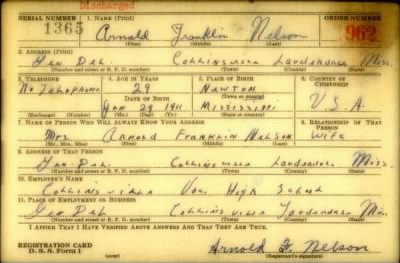 Discharged
SERIAL NUMBER 1. NAME (Print) ORDER NUMBER
1365 Arnold Franklin Nelson 962
(First) (Middle) (Last)
2. ADDRESS (Print)
Gen Del. Collinsville Lauderdale Miss.
(Number and street or R. F. D. number) (Town) (County) (State)
3. TELEPHONE 4. AGE IN YEARS 5. PLACE OF BIRTH 6. COUNTRY OF CITIZENSHIP
No Telephone 29 Newton
DATE OF BIRTH (Town or county)
Jan 29 1911 Mississippi U.S.A.
(Exchange) (Number) (Mo.) (Day) (Yr.) (State or country)
7. NAME OF PERSON WHO WILL ALWAYS KNOW YOUR ADDRESS 8. RELATIONSHIP OF THAT PERSON
Mrs Arnold Franklin Nelson Wife
(Mr., Mrs., Miss) (First) (Middle) (Last)
9. ADDRESS OF THAT PERSON
Gen. Del. Collinsville Lauderdale Miss.
(Number and street or R. F. D. number) (Town) (County) (State)
10. EMPLOYER'S NAME
Collinsville Voc. High School
11. PLACE OF EMPLOYMENT OR BUSINESS
Gen Del Collinsville Lauderdale Miss.
(Number and street or R. F. D. number) (Town) (County) (State)
I AFFIRM THAT I HAVE VERIFIED ABOVE ANSWERS AND THAT THEY ARE TRUE.
REGISTRATION CARD
D. S. S. Form 1 Arnold F. Nelson
(over) (Registrant's signature)